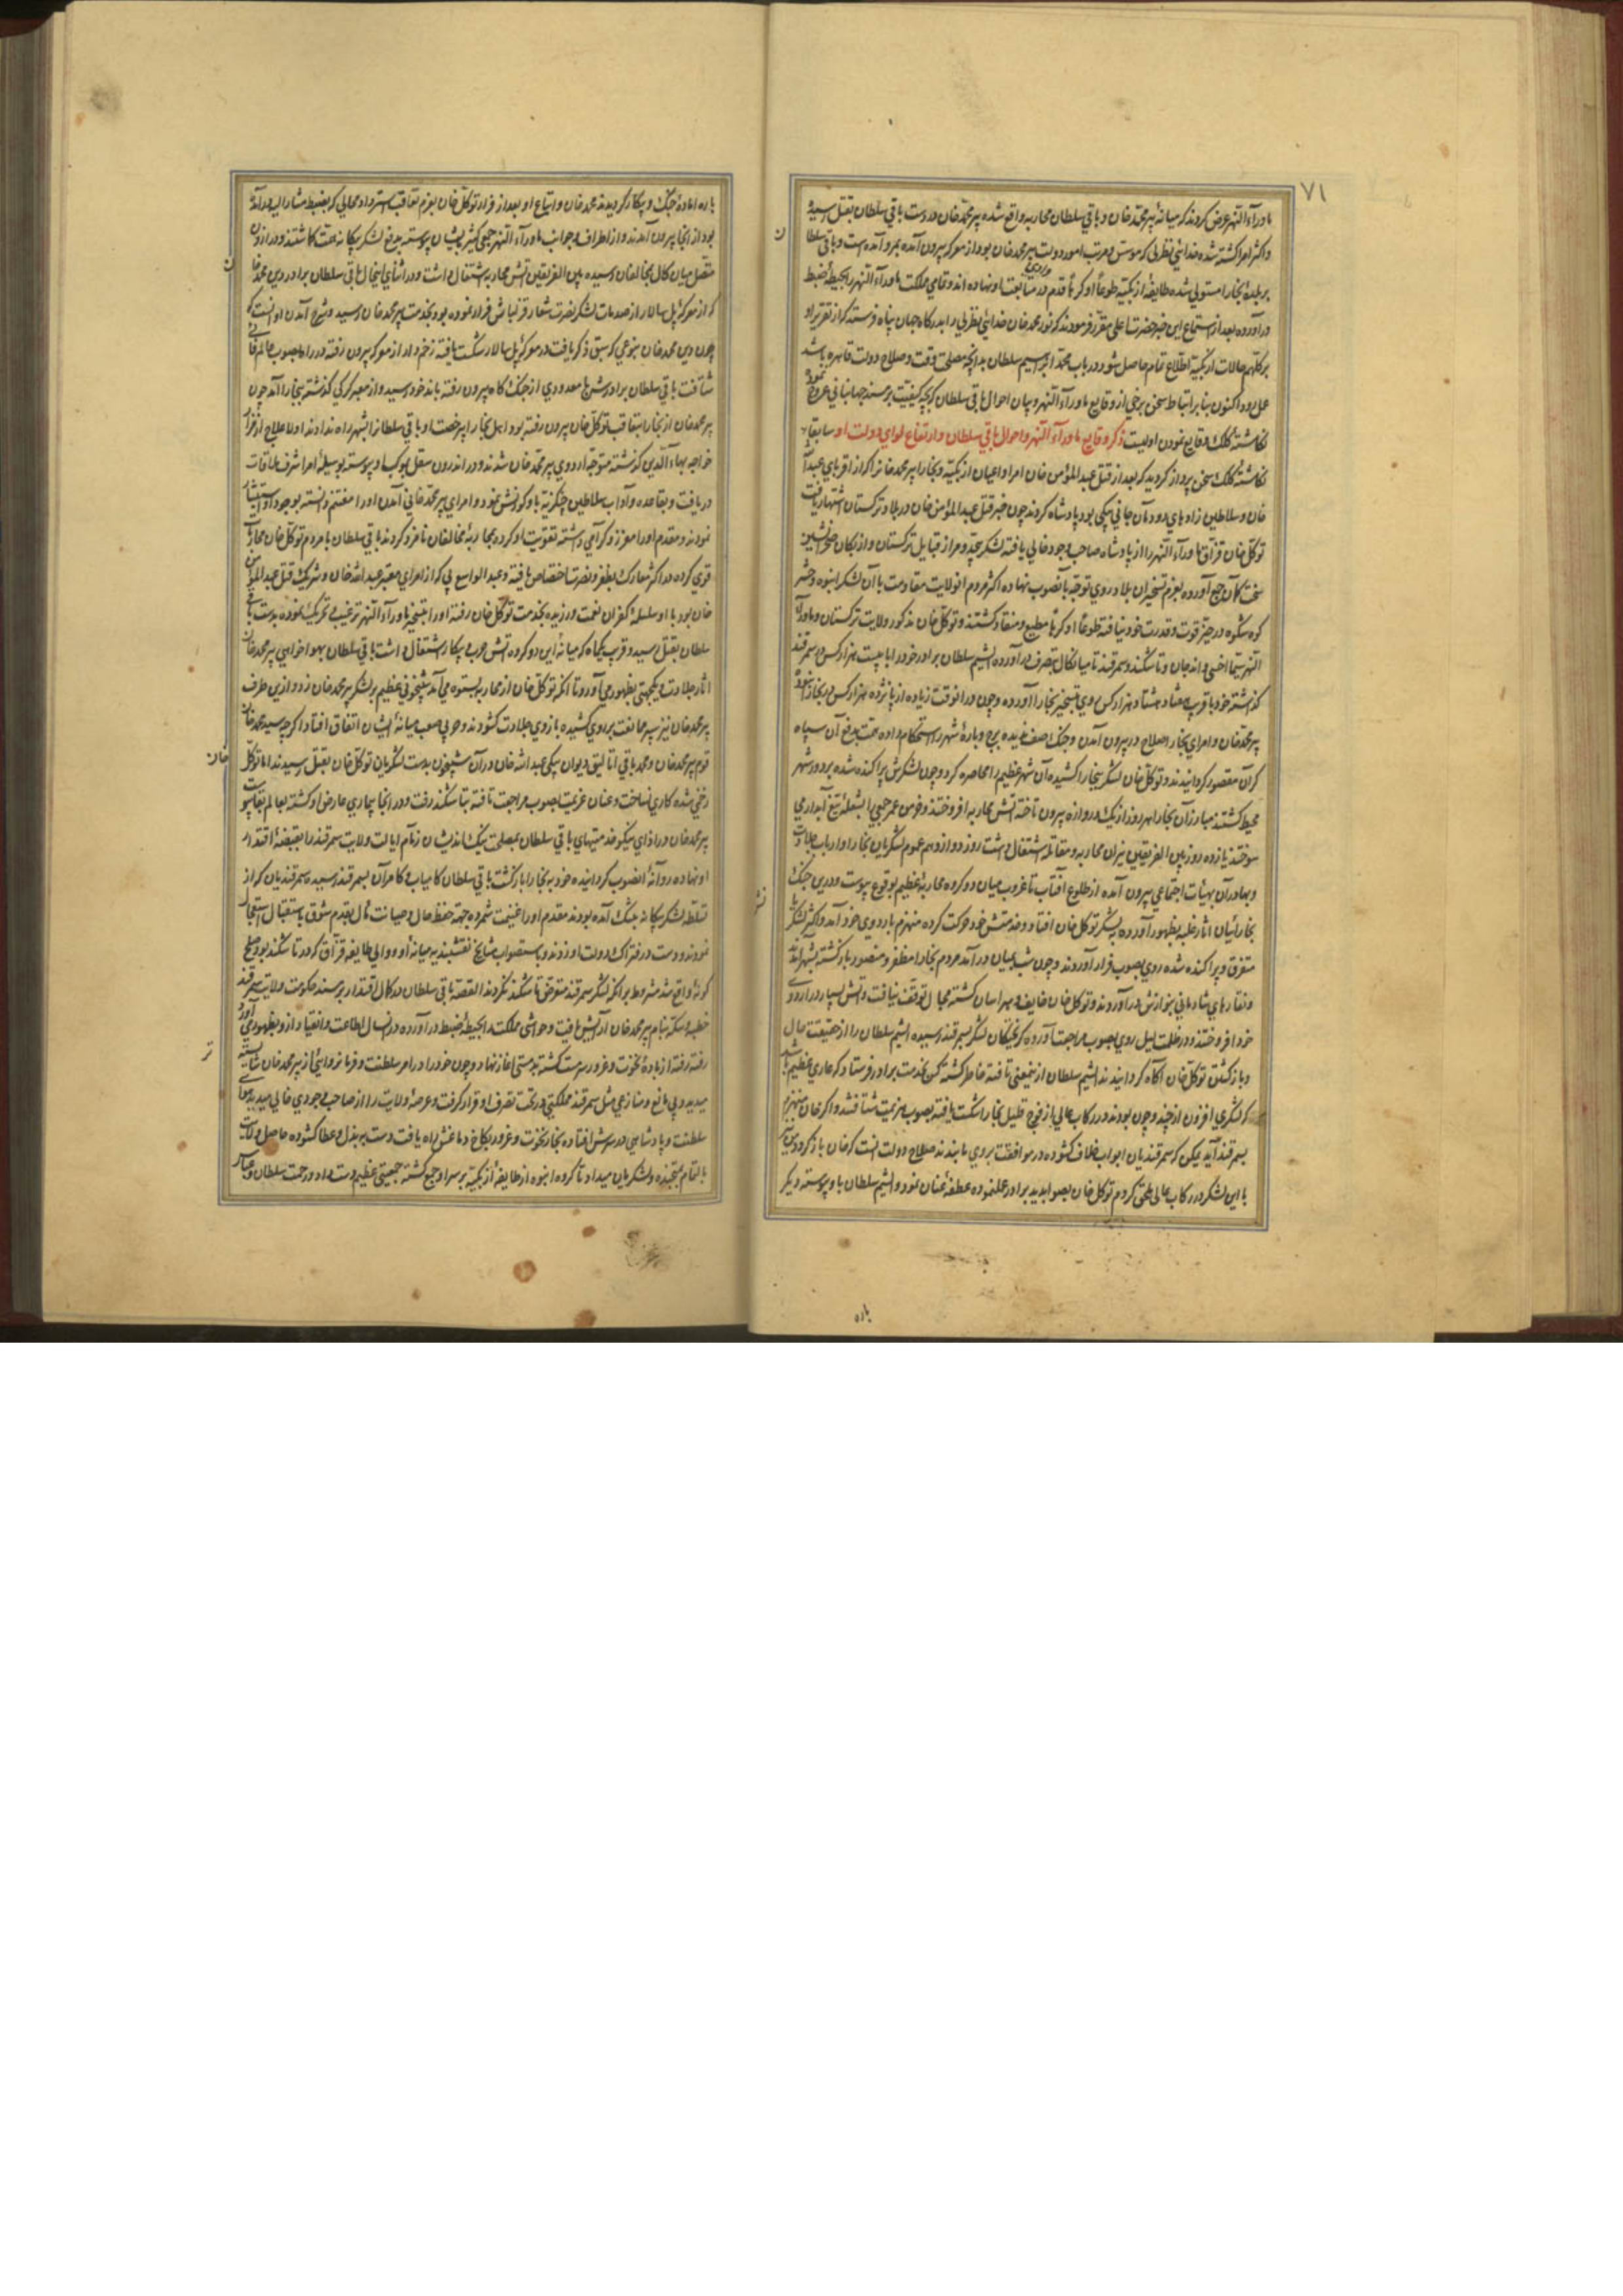 ۷۱
ماورآء النهر عرض کردند که میانهٔ پیر محمد خان و باقی سلطان محاربه واقع شده پیر محمد خان در دست باقی سلطان بقتل رسید
و اکثر امرا کشته شده خدای نظربی که مؤسس و مرتب امور دولت پیر محمد خان بود از معرکه بیرون آمده بمرو آمده است و باقی سلطا
ن
بر بلدهٔ بخارا مستولی شده طایفهٔ ازبکیه طوعاً او کرهاً قدم در متابعت او نهاده اند و تمامی مملکت ماورآء النهر را بحیطهٔ ضبط
درآورده بعد از استماع این خبر حضرت اعلی مقرر فرمودند که نور محمد خان خدای نظربی را بدرگاه جهان پناه فرستد که از تقریر او
بر کلّهم حالات ازبکیه اطلاع تمام حاصل شود و در باب محمد ابراهیم سلطان بدانچه مصلحت وقت و صلاح دولت قاهره باشد
عمل رود اکنون بنابر ارتباط سخن برخی از وقایع ماورآء النهر و بیان احوال باقی سلطان که بچه کیفیت بر مسند جهانبانی عروج نمود
نگاشتهٔ کلک وقایع نمودن اولیست ذکر وقایع ماورآء النهر و احوال باقی سلطان و ارتفاع لوای دولت او سابقا
نگاشتهٔ کلک سخن پرداز گردید که بعد از قتل عبد المؤمن خان امرا و اعیان ازبکیه و بخارا پیر محمد خانرا که از اقربای عبد الله
خان و سلاطین زادهای دودمان جانی بیکی بود پادشاه کردند چون خبر قتل عبد المؤمن خان در بلاد ترکستان اشتهار یافت
توکل خان قزاق ماورآء النهر را از پادشاه صاحب وجود خالی یافته لشکر بیحد و مر از قبایل ترکستان و ازبکان صحرانشین
سخت کمان جمع آورده بعزم تسخیر ان بلاد روی توجه بآنصوب نهاده اکثر مردم انولایت مقاومت با آن لشکر انبوه و حشر
کوه شکوه در حیز قوت و قدرت خود نیافته طوعاً او کرهاً مطیع و منقاد گشتند و توکل خان مذکور ولایت ترکستان و ماورآء
النهر سیما اخسی و اندجان و تاشکند و سمرقند تا میانکال بتصرف درآورده ایشیم سلطان برادر خود را با بیست هزار کس در سمرقند
گذاشته خود با قریب هفتاد هشتاد هزار کس روی بتسخیر بخارا آورده و چون در انوقت زیاده از پانزده هزار کس در بخارا نبود
پیر محمد خان و امرای بخارا صلاح در بیرون آمدن و جنک صف ندیده برج و بارهٔ شهر را استحکام داده همت بدفع آن سپاه
کران مقصور گردانیدند و توکل خان لشکر ببخارا کشیده آن شهر عظیم را محاصره کرد و چون لشکرش پراکنده شده بر دور شهر
محیط گشتند مبارزان بخارا هر روز از یک دروازه بیرون تاخته آتش محاربه افروختند و خرمن عمر جمعی را بشعلهٔ تیغ آبدار می
سوختند یازده روز بین الفریقین نیران محاربه و مقاتله اشتعال داشت روز دوازدهم عموم لشکریان بخارا و ارباب جلادت
و بهادران بهیأت اجتماعی بیرون آمده از طلوع آفتاب تا غروب میان دو گروه محاربهٔ عظیم بوقوع پیوست و در ین جنک
بخارائیان اثار غلبه بظهور آورده لشکر توکل خان افتاد و خدمتش خود حرکت کرده منهزم باردوی خود آمد و اکثر لشکر
متفرق و پراکنده شده روی بصوب فرار آوردند و چون شب بمیان درآمد مردم بخارا مظفر و منصور بازگشته بشهر اند
و نقارهای شادمانی بنوازش درآوردند و توکل خان خایف و هراسان گشته مجال توقف نیافت و آتش بسیار در اردوی
خود افروختند و در ظلمت لیل روی بصوب مراجعت آورده گریختگان لشکر بسمرقند رسیده ایشیم سلطان را از حقیقت حال
و بازگشتن توکل خان آگاه گردانیدند ایشیم سلطان از ینمعنی تافته خاطر گشته کس بخدمت برادر فرستاد که عاری عظیم باشد
که لشکری افزون از چند و چون بودند در رکاب عالی از فوج قلیل بخارا شکست یافته بصوب هزیمت شتافتند و اگر خان منهزم
بسمرقند آید یمکن که سمرقندیان ابواب خلاف گشوده در موافقت بروی ما بندند صلاح دولت انست که خان باز گردد من نیز
با این لشکر در رکاب عالی ملحق کردم توکل خان بصوابدید برادر عملنموده عطف عنان نمود و ایشیم سلطان باو پیوسته دیگر
باره
باره امادهٔ جنک و پیکار گردیدند محمد خان و اتباع او بعد از فرار توکل خان بعزم تعاقب استرداد محالی که بضبط مشار الیه درآمده
بود از بخارا بیرون آمدند و از اطراف و جوانب ماورآء النهر جمعی کثیر بایشان پیوسته بدفع لشکر بیگانه همت گماشتند و در ازون
متصل میان کال بمخالفان رسیده بین الفریقین آتش محاربه اشتعال داشت و در اثنای اینحال باقی سلطان برادر دین محمد خا
ن
که از معرکهٔ پل سالار از صدمات لشکر نصرت شعار قزلباش فرار نموده بود بخدمت پیر محمد خان رسید و شرح آمدن او انست که
چون دین محمد خان بنوعی که سبق ذکر یافت در معرکهٔ پل سالار شکست یافته زخم دار از معرکه بیرون رفته در راه بصوب عالم فانی
شتافت باقی سلطان برادرش با معدودی از جنک گاه بیرون رفته باند خود رسید و از معبر کرکی گذشته ببخارا آمد چون
پیر محمد خان از بخارا بتعاقب توکل خان بیرون رفته بود اهل بخارا بیرخصت او باقی سلطانرا بشهر راه ندادند او لاعلاج از مزار
خواجه بهاء الدین گذشته متوجه اردوی پیر محمد خان شد و در اندرون سغل بموکب او پیوسته بوسیلهٔ امرا شرف ملاقات
دریافت و بقاعده و آداب سلاطین چنگیزیه باو کورنش نمود و امرای پیر محمد خانی آمدن او را مغتنم دانسته بوجود او استبشار
نمودند و مقدم او را معزز و گرامی داشته تقویت او کرده بمحاربهٔ مخالفان نامزد کردند باقی سلطان با مردم توکل خان محاربات
قوی کرده در اکثر معارک بظفر و نصرت اختصاص یافته و عبد الواسع بی که از امرای معتبر عبد الله خان و شریک قتل عبد المؤمن
خان بود با او سلسلهٔ کفران نعمت ورزیده بخدمت توکل خان رفته او را بتسخیر ماورآء النهر ترغیب و تحریک نموده بدست باقی
سلطان بقتل رسید و قریب یکماه که میانهٔ این دو گروه آتش حرب و پیکار اشتعال داشت باقی سلطان بهواخواهی پیر محمد خان
اثار جلادت و یکجهتی بظهور می آورد تا آنکه توکل خان از محاربه بستوه می آمد شبیخونی عظیم بر لشکر پیر محمد خان زد و ازین طرف
پیر محمد خان نیز سپر ممانعت بر روی کشیده بازوی جلادت گشودند و حربی صعب میانهٔ ایشان اتفاق افتاد اگر چه سید محمد خان
قوم پیر محمد خان و محمد باقی اتالیق دیوان بیکی عبد الله خان در آن شبیخون بدست لشکریان توکل خان بقتل رسیدند اما توکل
خان
زخمی شده کاری نساخت و عنان عزیمت بصوب مراجعت تافته بتاشکند رفت و در انجا بیماری عارض او گشته بعالم بقا پیوست
پیر محمد خان در ازای نیکو خدمتیهای باقی سلطان بمصلحت نیک اندیشان زمام ایالت ولایت سمرقند را بقبضهٔ اقتدار
او نهاده روانهٔ انصوب گردانیده خود به بخارا بازگشت باقی سلطان کامیاب و کامران بسمرقند رسیده سمرقندیان که از
تسلط لشکر بیگانه بتنک آمده بودند مقدم او را غنیمت شمرده جهة حفظ حال و صیانت مآل بقدم شوق باستقبال استعجال
نمودند و دست در فتراک دولت او زدند و باستصواب مشایخ نقشبندیه میانهٔ او و والی طایفه قزاق که در تاشکند بود صلح
گونهٔ واقع شد مشروط بر آنکه لشکر سمرقند متعرض تاشکند نگردند القصه باقی سلطان در کمال اقتدار بر مسند حکومت ولایت سمرقند
خطبه و سکه بنام پیر محمد خان آرایش یافت و حواشی مملکت را بحیطهٔ ضبط درآورده در انسال اطاعت و انقیاد ازو بظهور می آورد
رفته رفته از بادهٔ نخوت و غرور سرمست گشته بدمستی آغاز نهاد و چون خود را در امر سلطنت و فرمانروائی از پیر محمد خان شایسته
تر
میدید و بی مانع و منازعی مثل سمرقند مملکتی در تحت تصرف او قرار گرفت و عرصهٔ ولایت را از صاحب وجودی خالی میدید هوای
سلطنت و پادشاهی در سرش افتاده بخار نخوت و غرور بکاخ دماغش راه یافت دست ببذل و عطا گشوده حاصل ولایت
بالتمام بتجنده و لشکریان میداد تا گروه انبوه از طایفهٔ ازبکیه بر سر او جمع گشته جمعیتی عظیم دست داد و رحمت سلطان و عباس